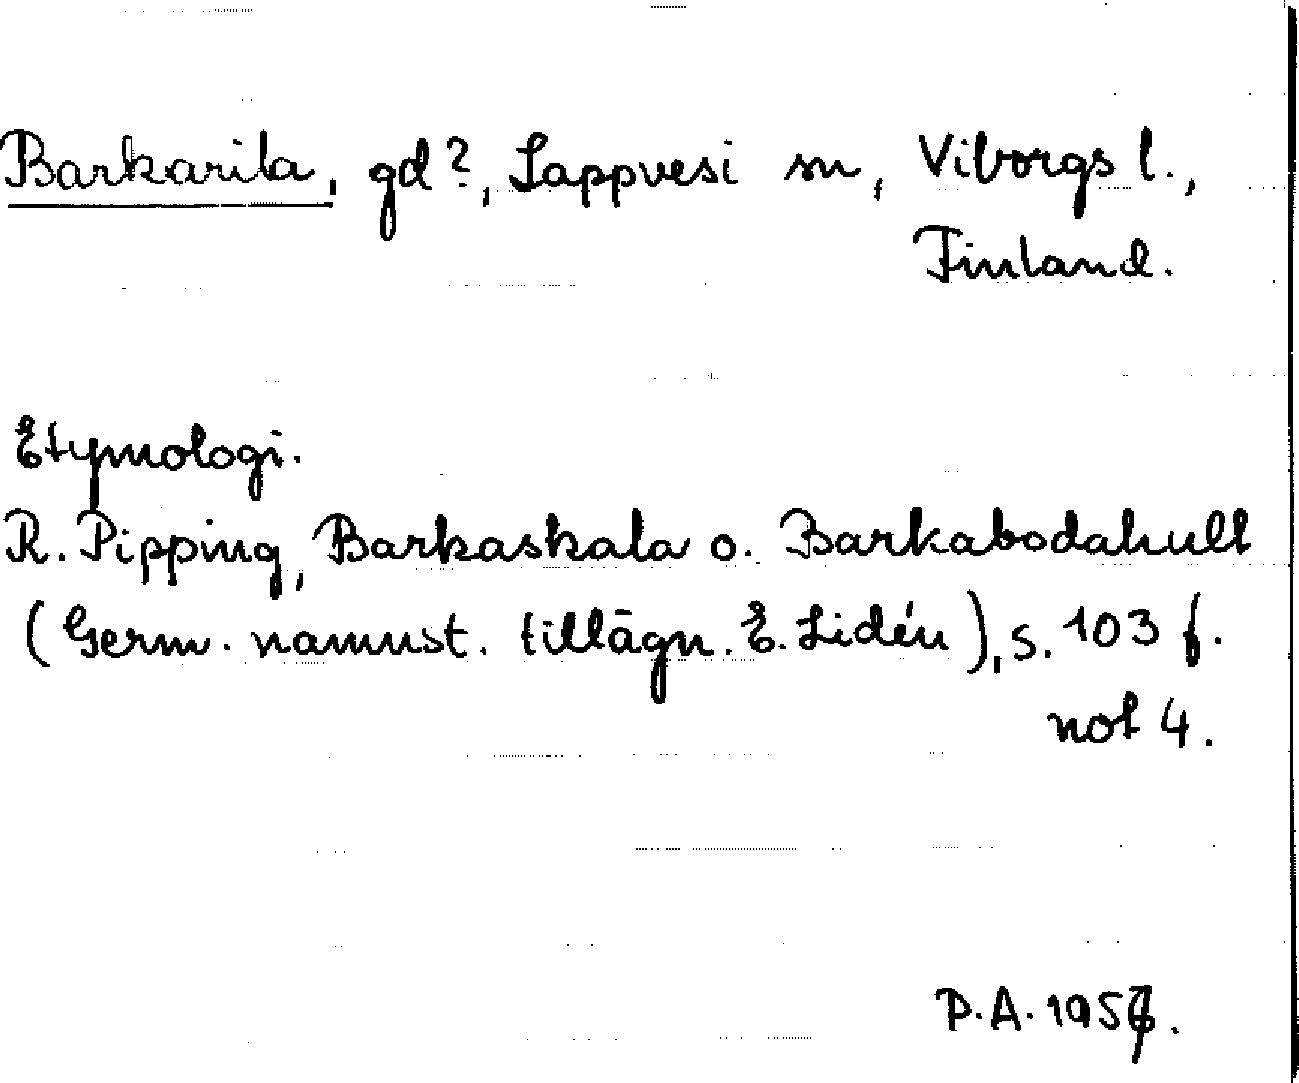 Barkarila, gd?, Lappvesi sn, Viborgs l.,
Finland.
Etymologi.
R. Pipping, Barkaskala o. Barkabodahult
(Germ. namnst. tillägn. E. Lidén), s. 103 f.
not 4.
P.A.